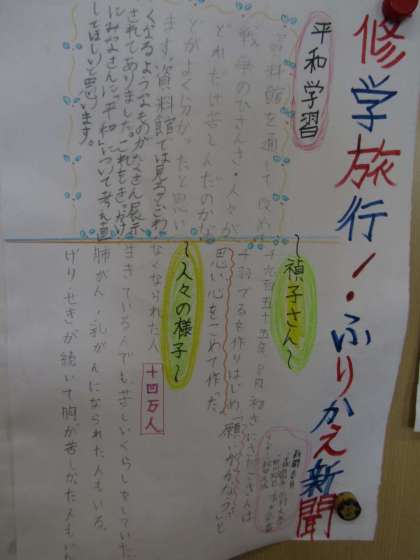 修学旅行!ふりかえ新聞
平和学習
資料館を通して、改め
戦争のひさんさ・人々が
どれだけ苦しんだのかな
とがよくに分かったと思い
ます。資料館では見ると
くなるようなものがたくさん展示
されてありました。これをきっかけ
にみなさんに"平和"について考え直
してほしいと思います。
〜禎子さん〜
千九百五十五年8月
千羽づるを作りはじめ「願いがかなう」と
思い心をこめて作った。
〜人々の様子〜
なくなられた人 十四万人
生きている人でも、苦しいくらしをしていた。
肺がん・乳がんになられた人もいる。
げり・せきが続いて胸が苦しかた人もい